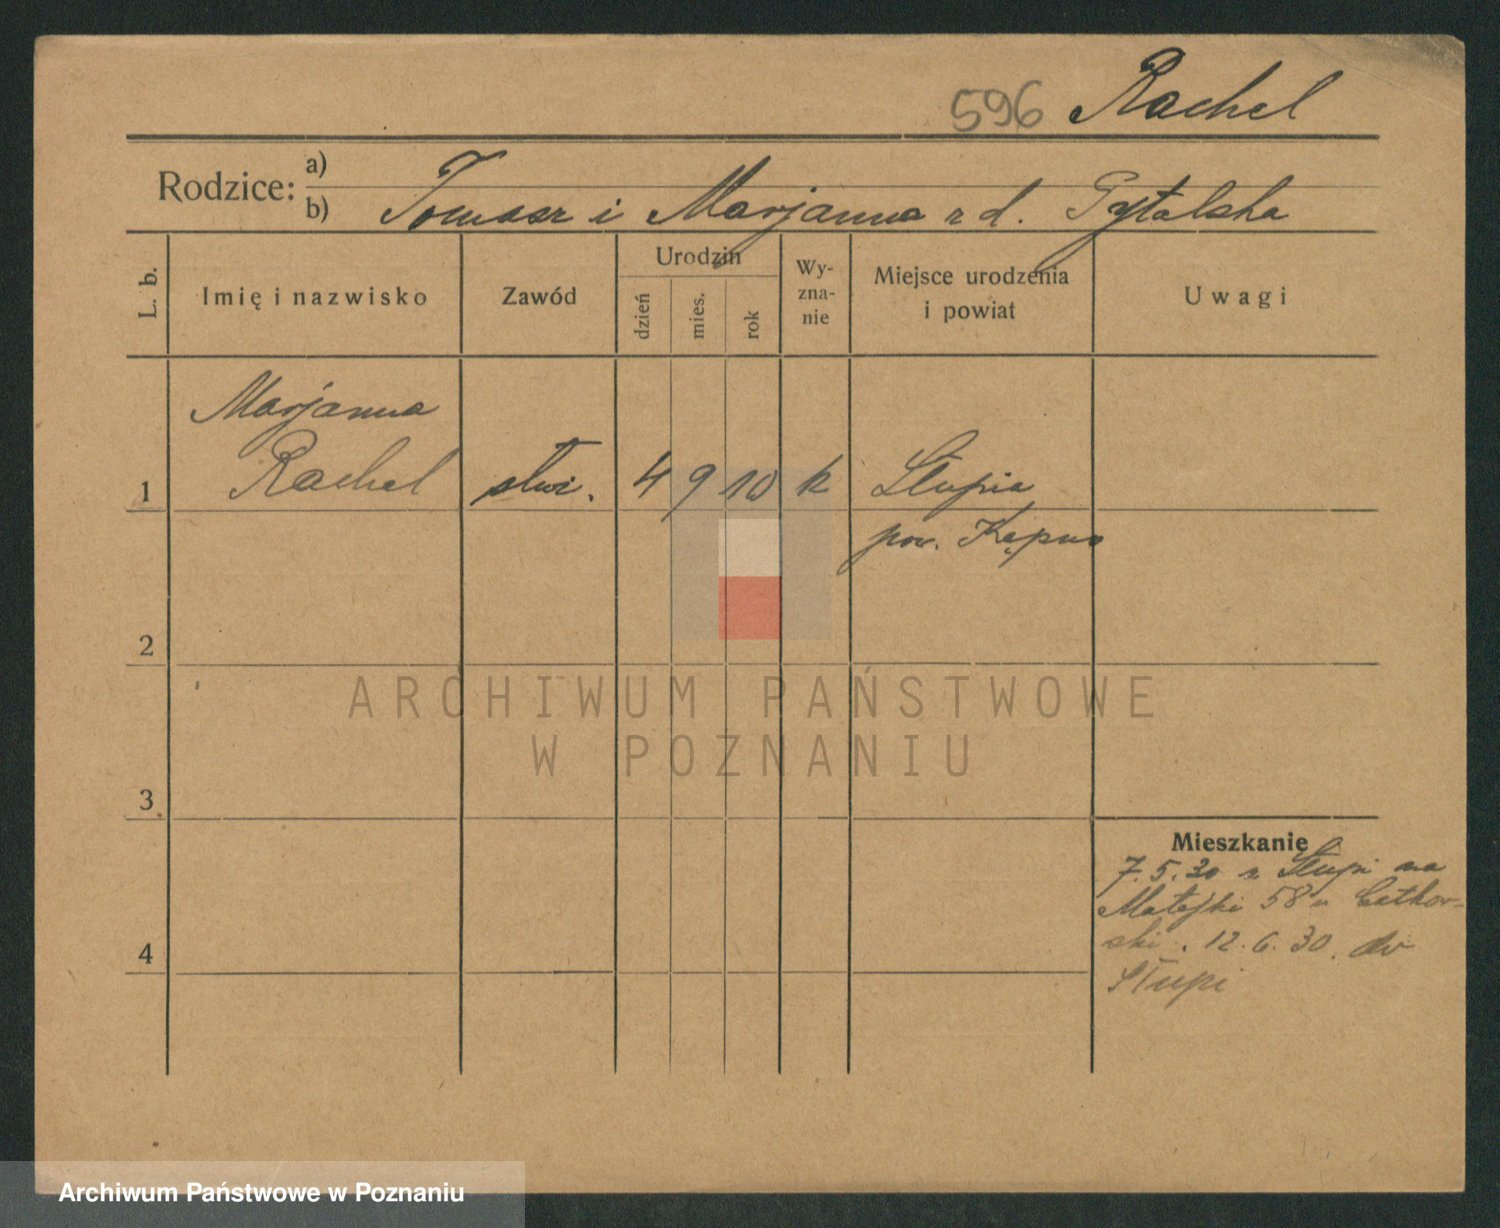 596 Rachel
Rodzice: a)
b) Tomasz i Marjanna z d. Pytalska
L. b.
Imię i nazwisko
Zawód
Urodzin
dzień
mies.
rok
Wy-
zna-
nie
Miejsce urodzenia
i powiat
Uwagi
Marjanna
1 Rachel służ. 4 9 10 k Słupia
pow. Kępno
2
ARCHIWUM PAŃSTWOWE
W POZNANIU
3
Mieszkanie
7.5.30 z Słupi na
Matejki 58 u
ski. 12.6.30. do
Słupi
4
Archiwum Państwowe w Poznaniu